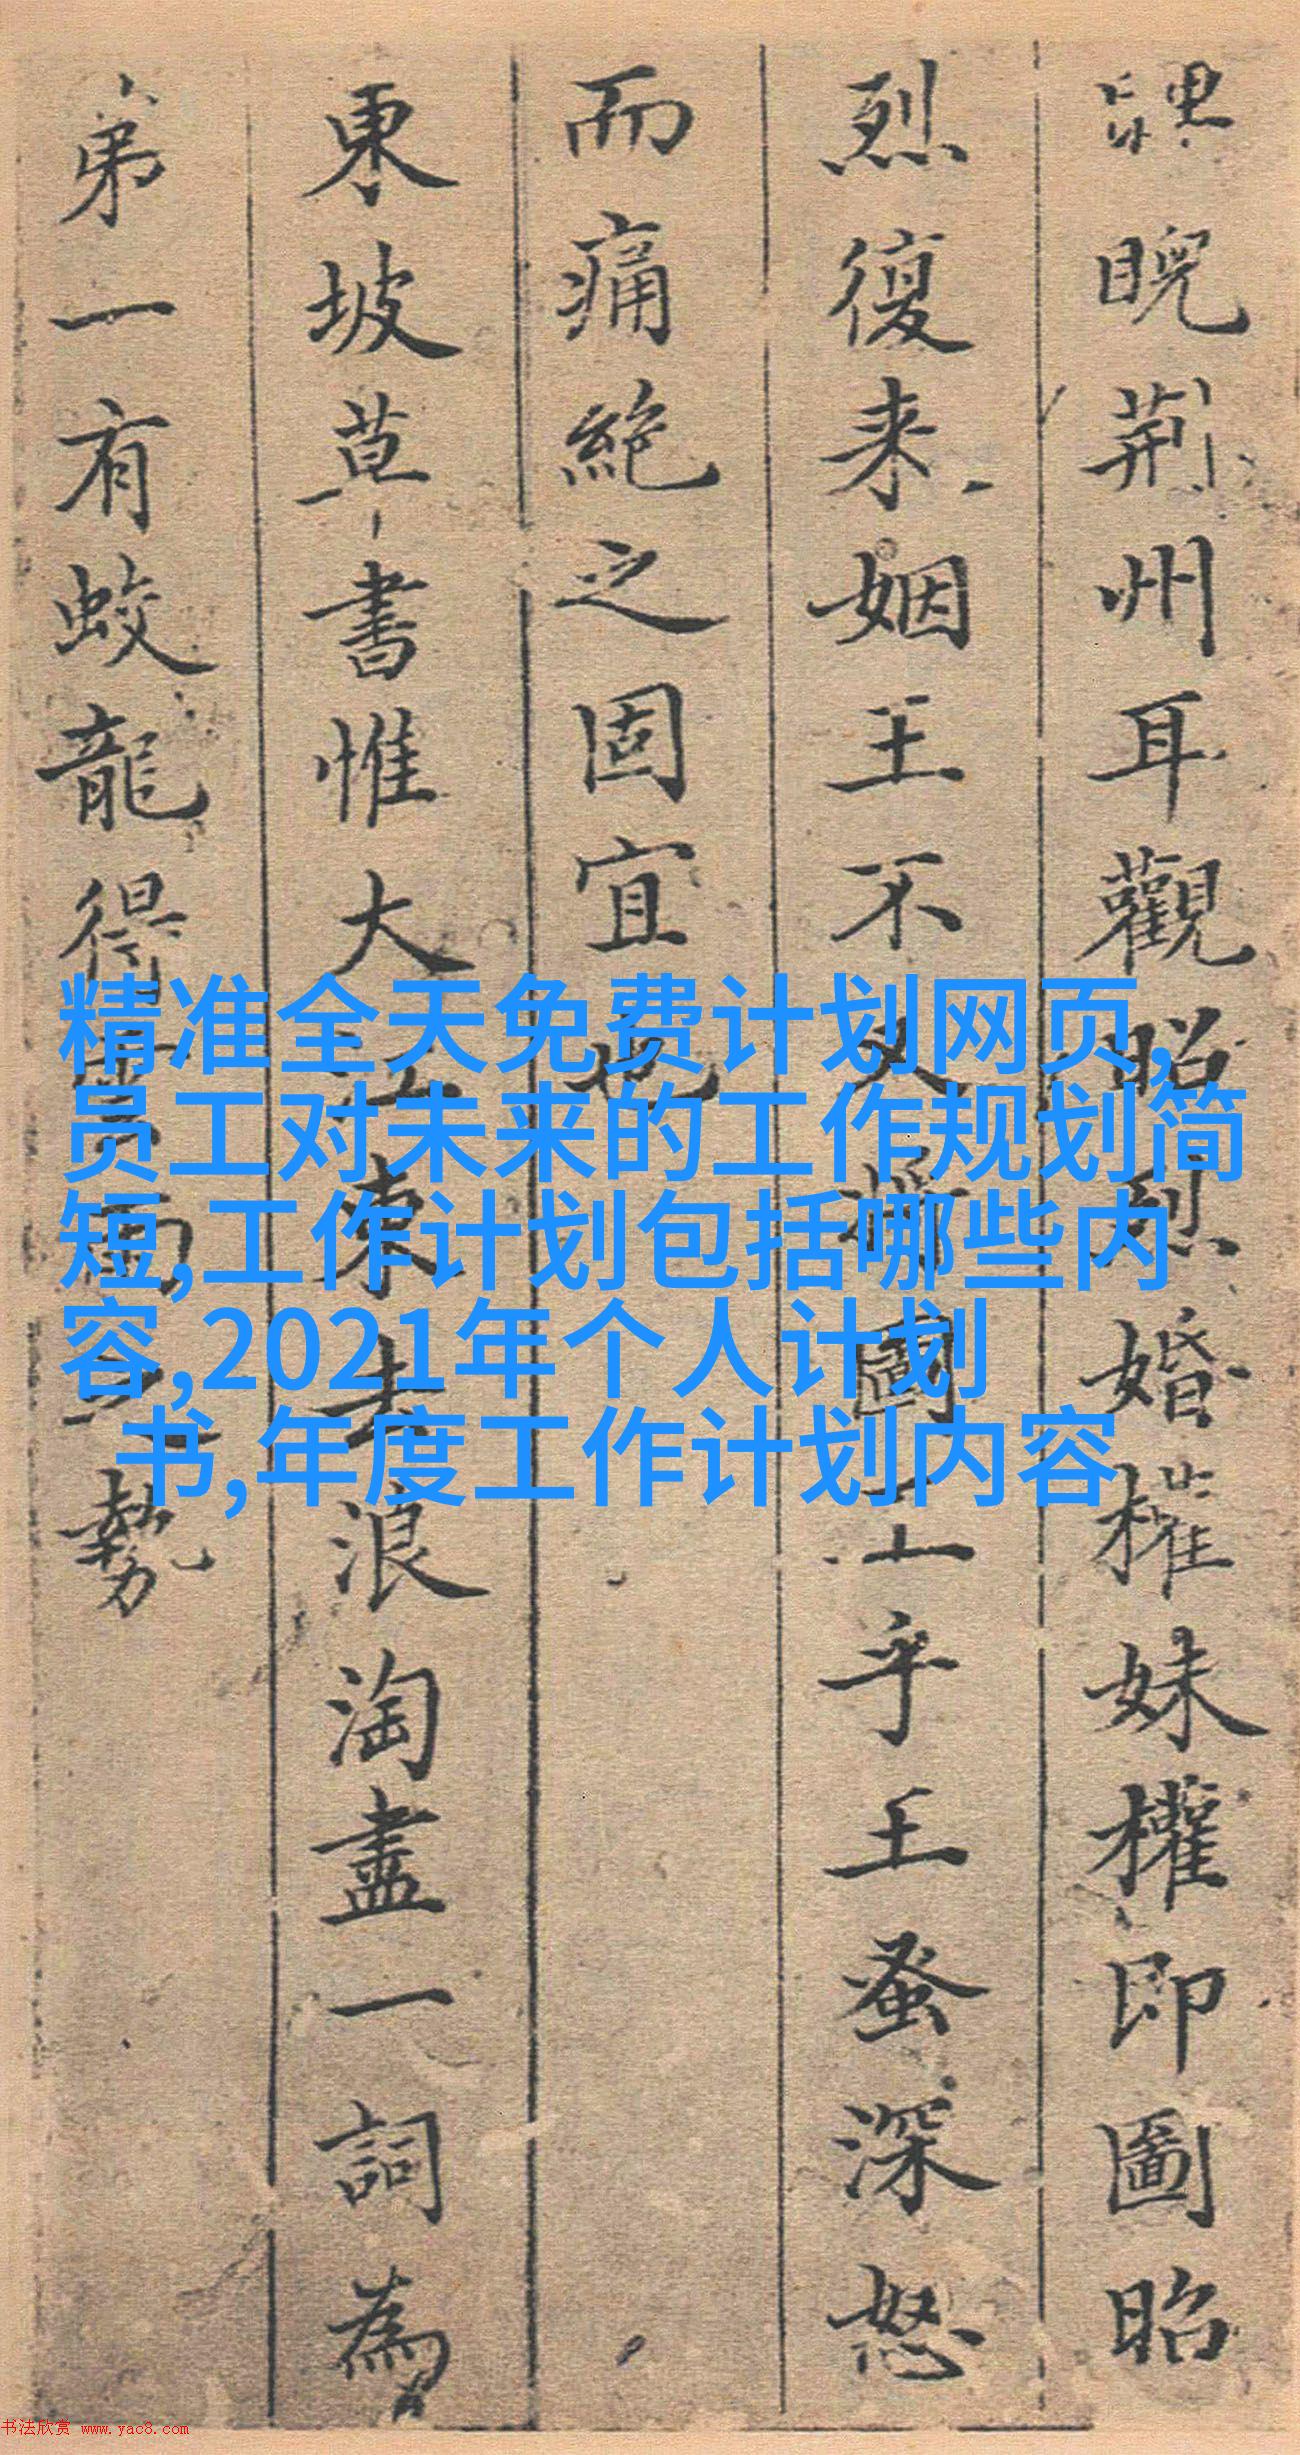 睨荊州耳觀昭烈婚權妹權即圖昭
烈復来姻王不又國王乎王蚤深怒
而痛絶之固宜也
東坡草書惟大江東去浪淘盡一詞為
弟一有蛟龍得雲雨之勢
精准全天免费计划网页,
员工对未来的工作规划简
短,工作计划包括哪些内
容,2021年个人计划
书,年度工作计划内容
书法欣赏 www.yac8.com